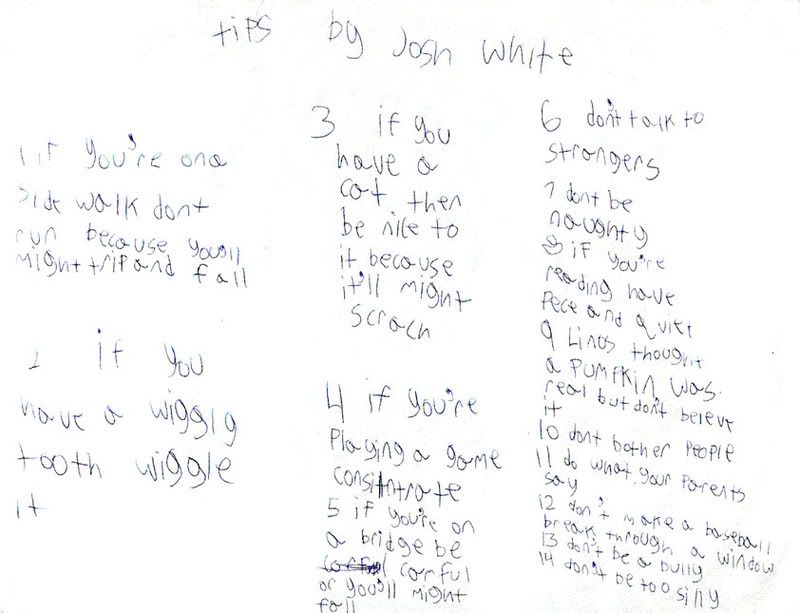 tips by Josh White
1 if you're on a
side walk dont
run because you'll
might trip and fall
2 if you
have a wiggly
tooth wiggle
it
3 if you
have a
cat then
be nice to
it because
it'll might
scrach
4 if you're
Playing a game
consintrate
5 if you're on
a bridge be
carful
or you'll might
fall
6 don't talk to
strangers
7 dont be
naughty
8 if you're
reading have
pece and quiet
9 Linos thought
a pumpkin was
real but don't beleve
it
10 dont bother people
11 do what your parents
say
12 don't make a baseball
break through a window
13 don't be a bully
14 don't be too silly